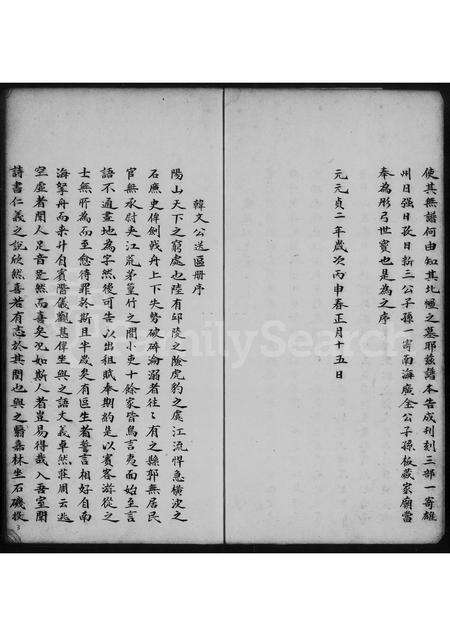 使其無譜何由知其北隴之墓耶茲譜本告成刋刻三部一寄雄
州日強日孜日新三公子孫一寄南海廣全公子孫敬藏家廟當
奉為彤弓世寶也是為之序
元元貞二年歲次丙申春正月十五日
韓文公送區冊序
陽山天下之窮處也陸有邱陵之險虎豹之虞江流悍急橫波之
石廉吏俾劍戟舟上下失勢破碎淪溺者往〻有之縣郭無居民
官無丞尉夾江荒茅篁竹之間小吏十餘家皆鳥言夷面始至言
語不通畫地為字然後可告以出租賦奉期約是以賓客游從之
士無所為而至愈待罪於斯且半歲矣有區生者誓言相好自南
海挐舟而來升自賓階儀觀甚偉坐與之語文義卓然莊周云逃
空虛者聞人足音跫然而喜矣况如斯人者豈易得哉入吾室聞
詩書仁義之說欣然喜若有志於其間也與之翳嘉林坐石磯投
FamilySearch